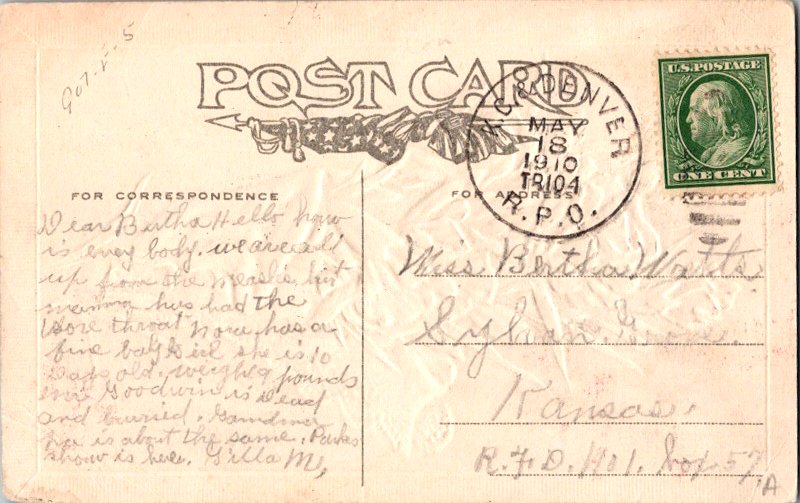 907-F-5
POST CARD
K.C. & DENVER
MAY
18
1910
TR104
R.P.O.
U.S. POSTAGE
ONE CENT
FOR CORRESPONDENCE
FOR ADDRESS
Dear Bertha Hello how
is every body. we are all
up from the Measles, but
mamma has had the
sore throat Nora has a
fine baby Girl she is 10
days old. weighs 9 pounds
Goodwin is dead
and buried. Grandma
is about the same. Parkes
show is here.
Miss Bertha Watts.
Sylvan Grove.
Kansas.
R.F.D. No 1. box 57
A